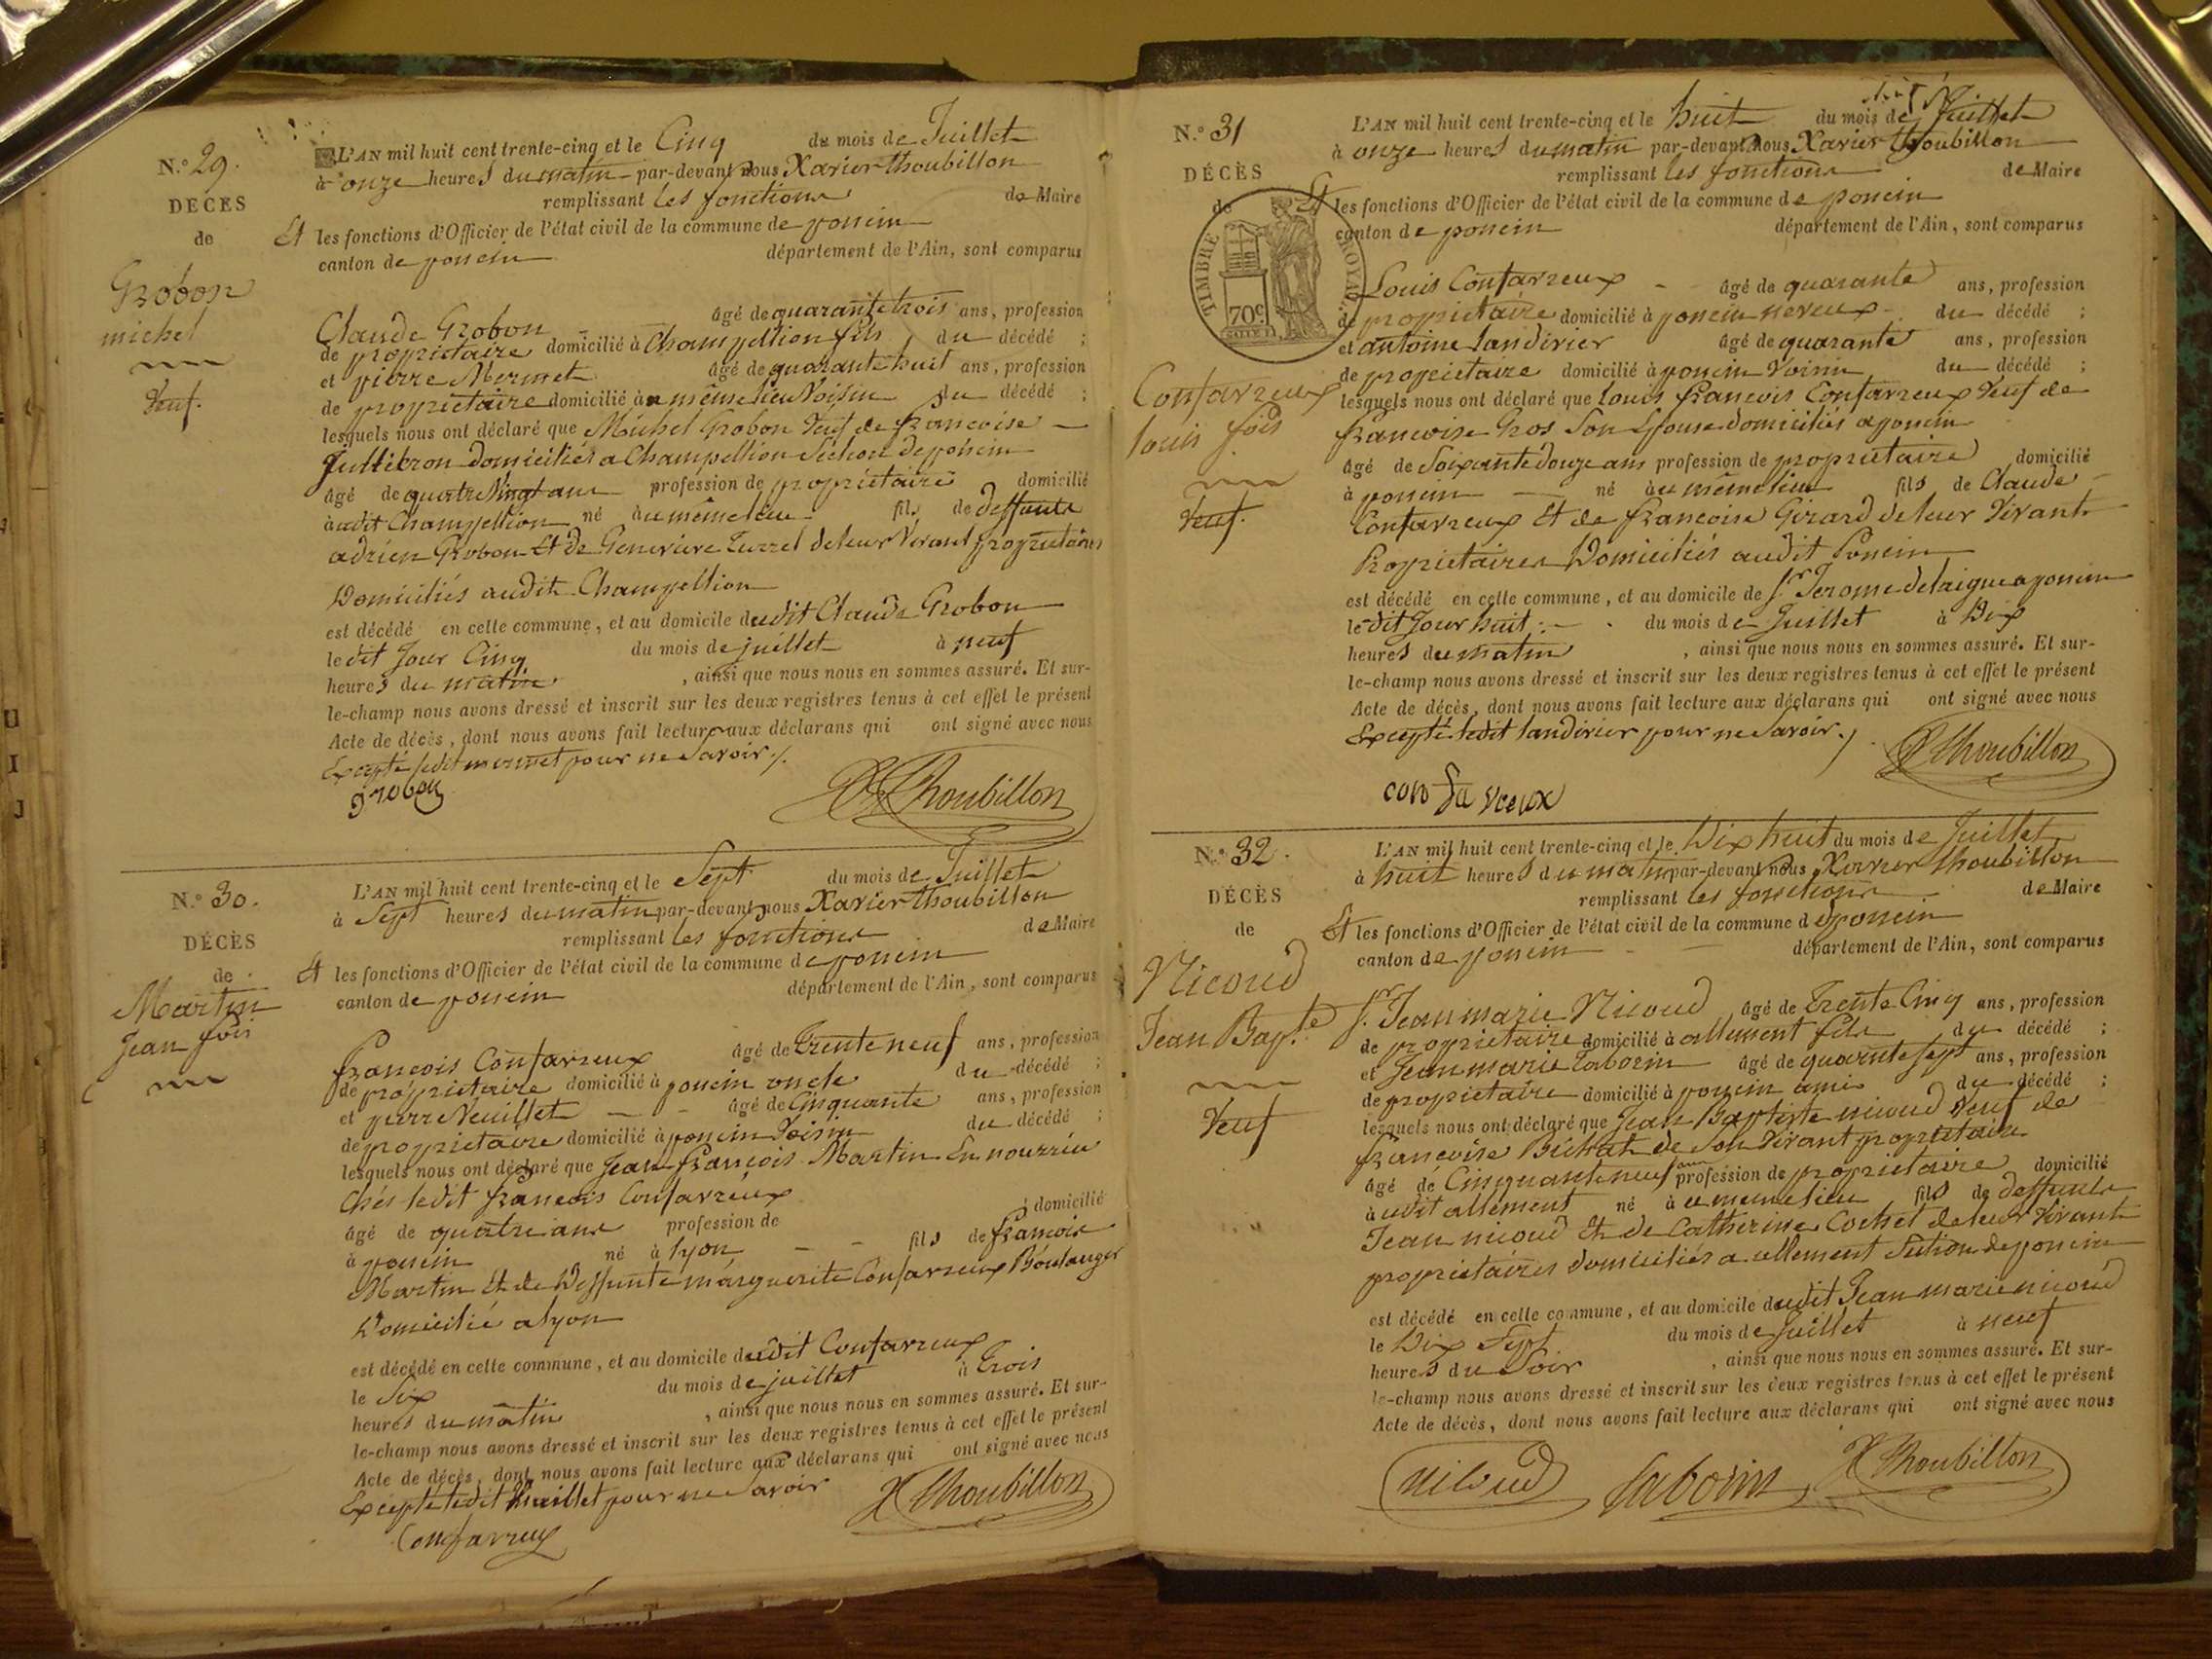 N.° 29.
DECES
de
Grobon
michel
Veuf.
L'AN mil huit cent trente-cinq et le Cinq du mois de Juillet
à onze heures du matin par-devant nous Xavier Thoubillon
remplissant les fonctions de Maire
Et les fonctions d'Officier de l'état civil de la commune de poncin
canton de poncin département de l'Ain, sont comparus
Claude Grobon âgé de quarante trois ans, profession
de propriétaire domicilié à Champeillion fils du décédé ;
et pierre Mermet âgé de quarante huit ans, profession
de propriétaire domicilié à u même lieu Voisin du décédé ;
lesquels nous ont déclaré que Michel Grobon Veuf de francoise
domiciliés a Champeillion Section de poncin
âgé de quatre Vingt ans profession de propriétaire domicilié
àudit Champeillion né àu même lieu fils de deffunts
adrien Grobon Et de Genevieve de leur Vivant propriétaires
Domiciliés audit Champeillion
est décédé en celle commune, et au domicile dudit Claude Grobon
le dit Jour Cinq du mois de juillet à neuf
heures du matin , ainsi que nous nous en sommes assuré. Et sur-
le-champ nous avons dressé et inscrit sur les deux registres tenus à cet effet le présent
Acte de décès, dont nous avons fait lecture aux déclarans qui ont signé avec nous
Excepté ledit mermet pour ne Savoir ./.
grobon X Thoubillon
N.° 30.
DÉCÈS
de
Martin
Jean fois
L'AN mil huit cent trente-cinq et le Sept du mois de Juillet
à Sept heures du matin par-devant nous Xavier Thoubillon
remplissant les fonctions de Maire
Et les fonctions d'Officier de l'état civil de la commune de poncin
canton de poncin département de l'Ain, sont comparus
francois Confavreux âgé de Trente neuf ans, profession
de propriétaire domicilié à poncin oncle du décédé ;
et pierre Veuillet âgé de Cinquante ans, profession
de propriétaire domicilié à poncin Voisin du décédé ;
lesquels nous ont déclaré que Jean francois Martin En nourrice
Chés ledit francois Confavreux
âgé de quatre ans profession de domicilié
à poncin né à lyon fils de francois
Martin Et de Deffunte marguerite Confavreux Boulanger
Domicilié a lyon
est décédé en celle commune, et au domicile dudit Confavreux
le Six du mois de juillet à Trois
heures du matin , ainsi que nous nous en sommes assuré. Et sur-
le-champ nous avons dressé et inscrit sur les deux registres tenus à cet effet le présent
Acte de décès, dont nous avons fait lecture aux déclarans qui ont signé avec nous
Excepté ledit Veuillet pour ne Savoir
Confavreux X Thoubillon
N.° 31
DÉCÈS
de
TIMBRE ROYAL
70c
Confavreux
louis fois
Veuf.
L'AN mil huit cent trente-cinq et le huit du mois de Juillet
à onze heures du matin par-devant nous Xavier Thoubillon
remplissant les fonctions de Maire
Et les fonctions d'Officier de l'état civil de la commune de poncin
canton de poncin département de l'Ain, sont comparus
Louis Confavreux âgé de quarante ans, profession
de propriétaire domicilié à poncin neveux du décédé ;
et antoine landirier âgé de quarante ans, profession
de propriétaire domicilié à poncin Voisin du décédé ;
lesquels nous ont déclaré que Louis francois Confavreux Veuf de
francoise Gros Son Epouse domiciliés a poncin
âgé de Soixante douze ans profession de propriétaire domicilié
à poncin né àu même lieu fils de Claude
Confavreux Et de francoise Girard de leur Vivant
Propriétaires Domiciliés audit Poncin
est décédé en celle commune, et au domicile de Sr. Jerome delaigue a poncin
le dit Jour huit du mois de Juillet à Dix
heures du matin , ainsi que nous nous en sommes assuré. Et sur-
le-champ nous avons dressé et inscrit sur les deux registres tenus à cet effet le présent
Acte de décès, dont nous avons fait lecture aux déclarans qui ont signé avec nous
Excepté ledit landirier pour ne Savoir ./
confavreux X Thoubillon
N.° 32.
DÉCÈS
de
Nicoud
Jean Bapte
Veuf
L'AN mil huit cent trente-cinq et le Dix huit du mois de Juillet
à huit heures du matin par-devant nous Xavier Thoubillon
remplissant les fonctions de Maire
Et les fonctions d'Officier de l'état civil de la commune de poncin
canton de poncin département de l'Ain, sont comparus
Sr. Jean marie Nicoud âgé de Trente Cinq ans, profession
de propriétaire domicilié à allement fils du décédé ;
et Jean marie Saborin âgé de quarante Sept ans, profession
de propriétaire domicilié à poncin ami du décédé ;
lesquels nous ont déclaré que Jean Baptiste nicoud Veuf de
francoise Bichat de Son Vivant propriétaire
âgé de Cinquante neuf ans profession de propriétaire domicilié
àudit allement né àu même lieu fils de deffunts
Jean nicoud Et de Catherine Cochet de leur Vivant
propriétaires domiciliés a allement Section de poncin
est décédé en celle commune, et au domicile dudit Jean marie nicoud
le Dix Sept du mois de Juillet à neuf
heures du Soir , ainsi que nous nous en sommes assuré. Et sur-
le-champ nous avons dressé et inscrit sur les deux registres tenus à cet effet le présent
Acte de décès, dont nous avons fait lecture aux déclarans qui ont signé avec nous
nicoud Saborin X Thoubillon